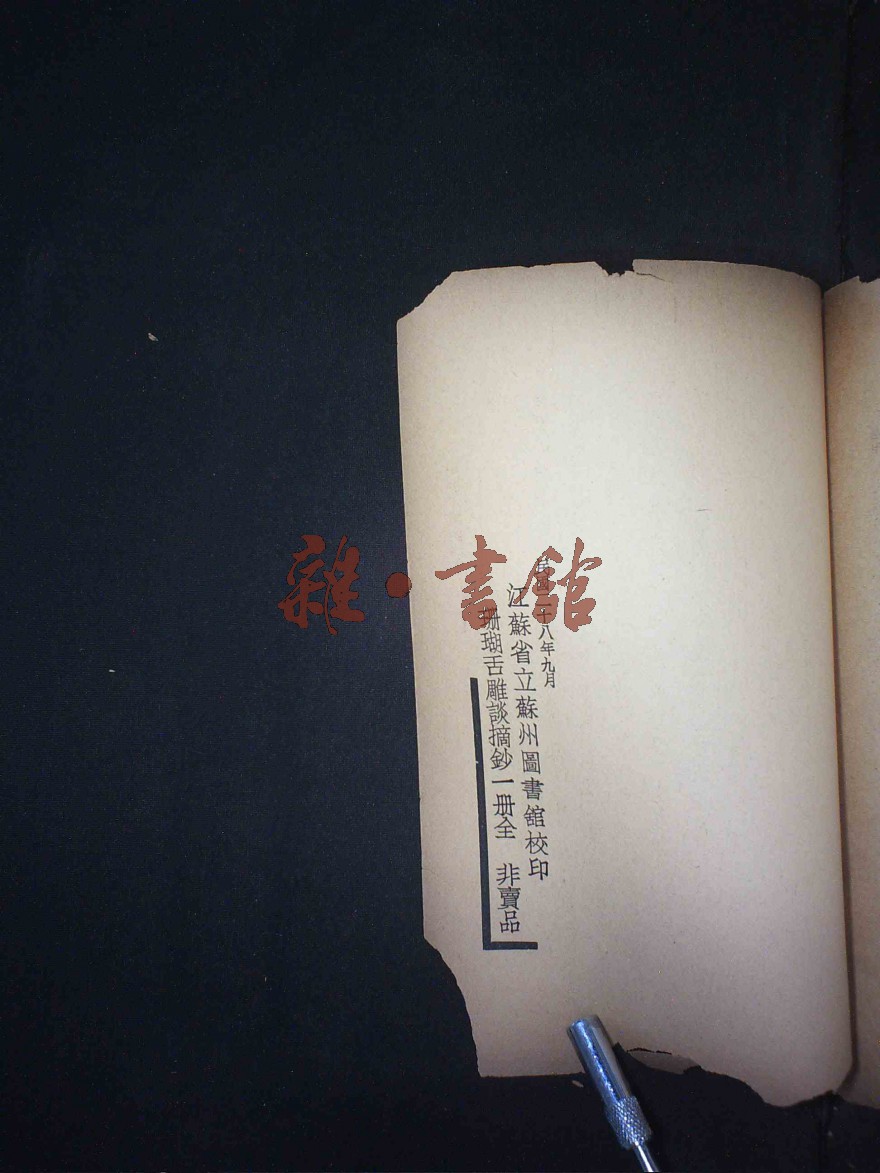 民國二十八年九月
江蘇省立蘇州圖書館校印
珊瑚舌雕談摘鈔一册全　非賣品
雜·書館